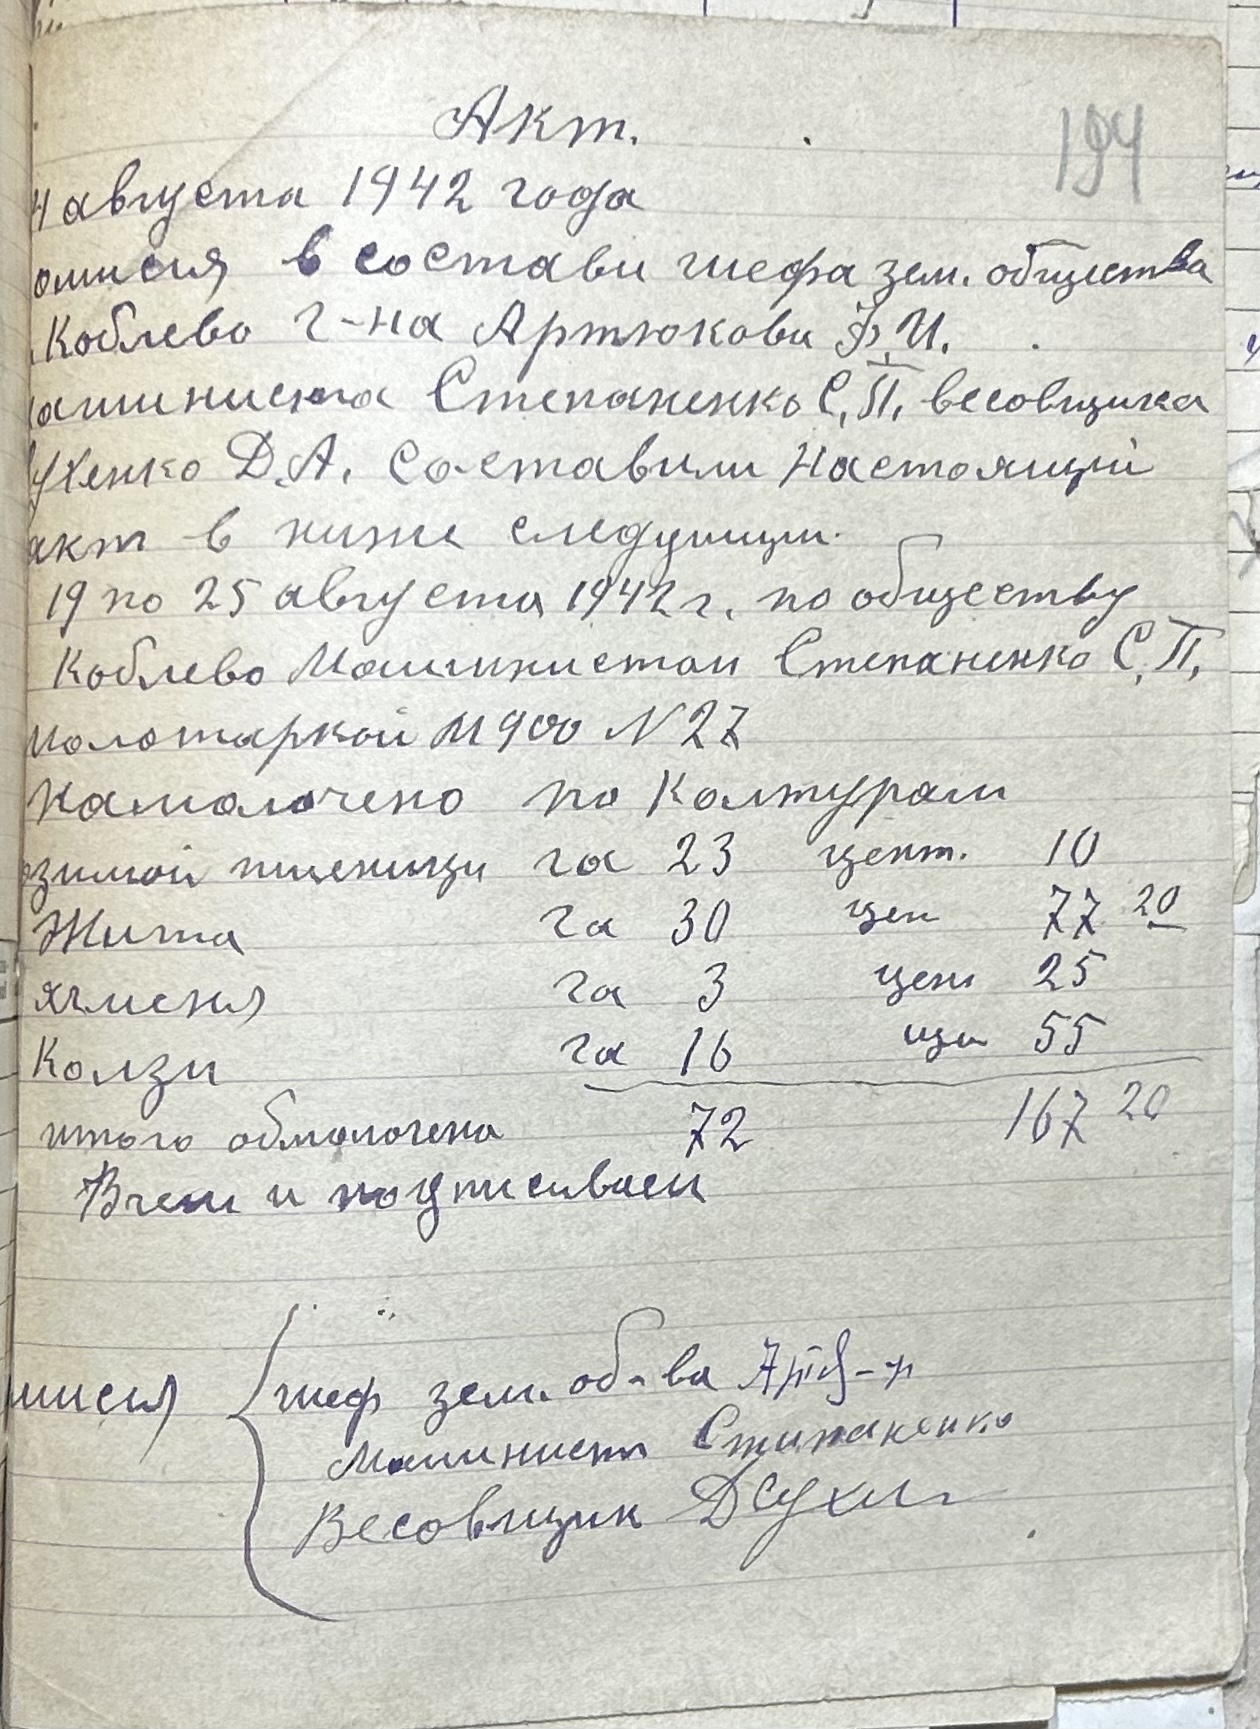 Акт.
194
августа 1942 года
омисия в состави шефа зем. общества
Коблево г-на Артюкова Ф. И.
ашиниста Степаненко С. П. весовщика
ухенко Д. А. составили настоящий
акт в ниже следующим.
19 по 25 августа 1942 г. по обществу
Коблево Машинистом Степаненко С. П.
молотаркой М 900 N 27
Намолочено по Колтурам
озимой пшеници га 23 цент. 10
Жита га 30 цен 77 20
ячменя га 3 цен 25
Колзи га 16 цен 55
итого обмолочено 72 167 20
В чем и подписиваем
мисия шеф зем. об-ва
Машинист Степаненко
Весовщик ДСухен